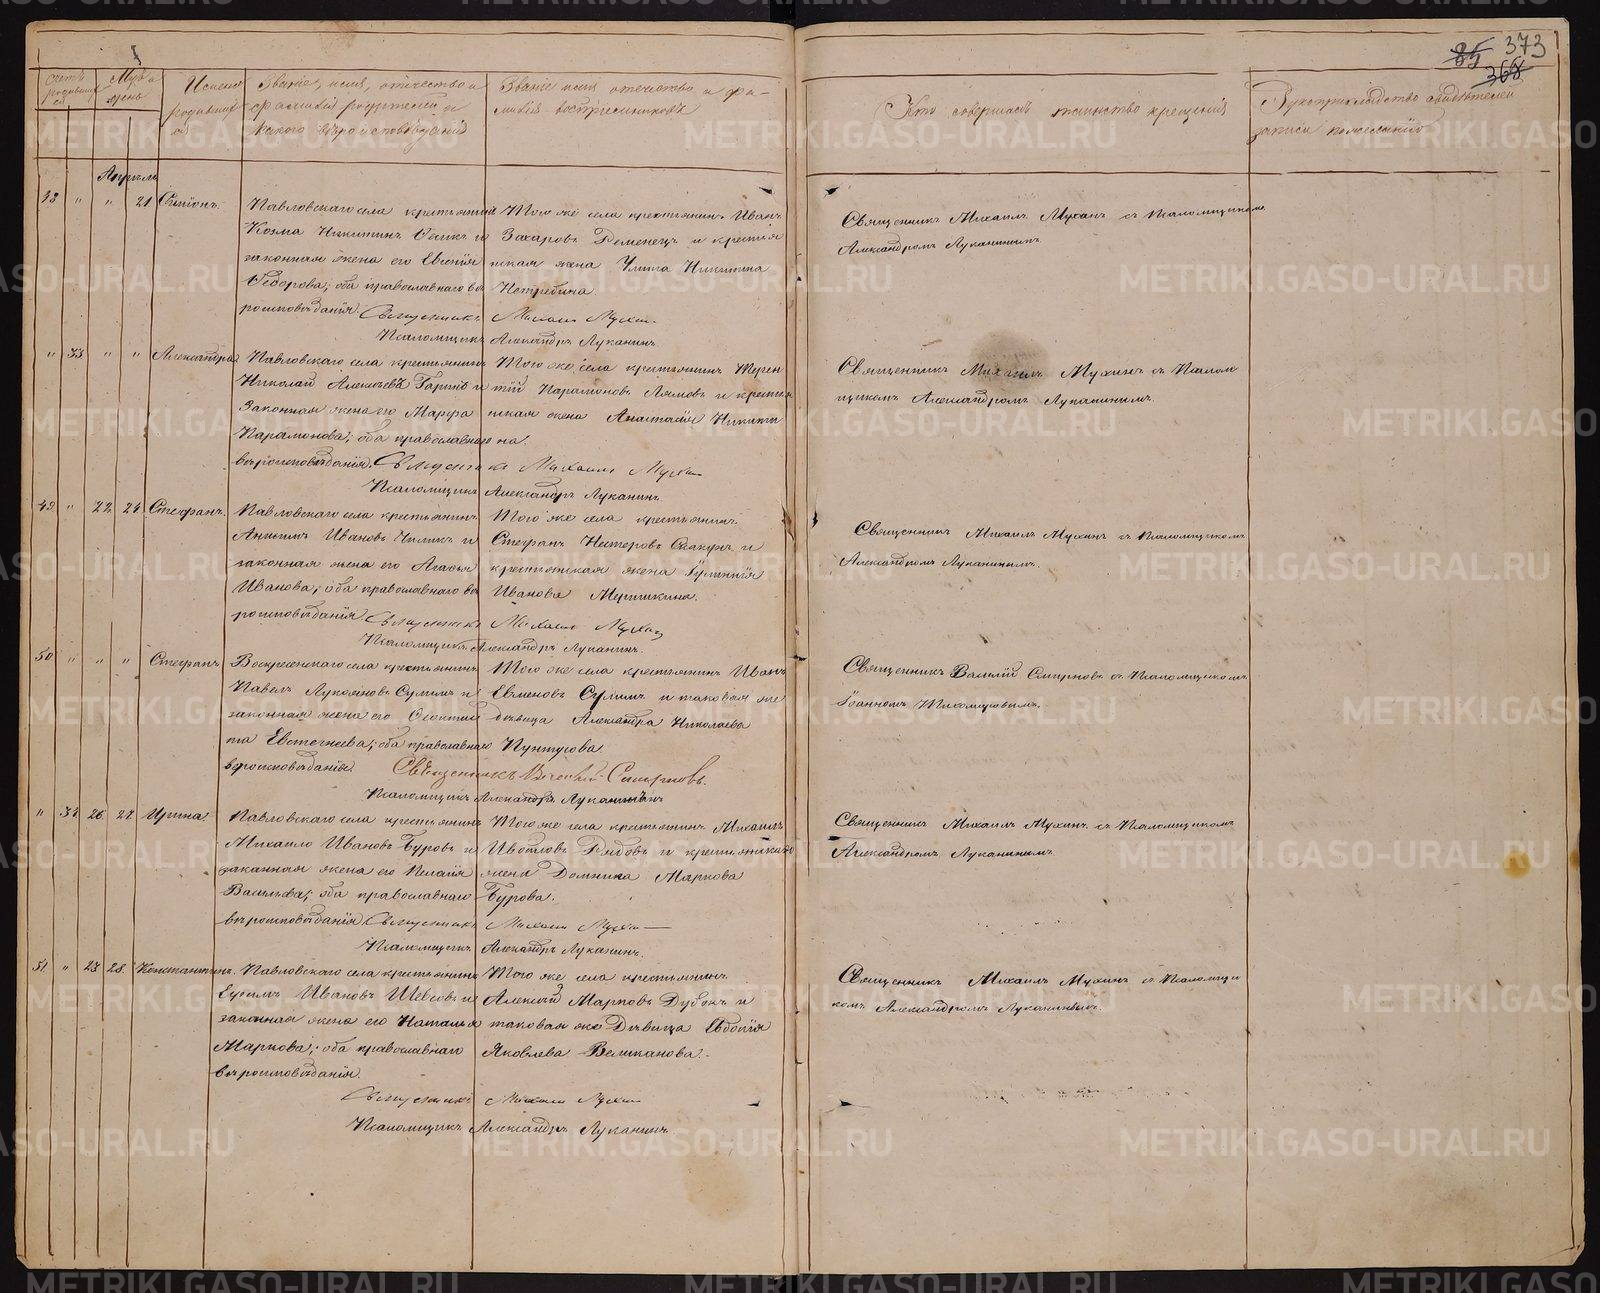 373
85
368
Счетъ родившихся
Мѣсяцъ и день
Имена родившихся
Званіе, имя, отчество и фамилія родителей и какого вѣроисповѣданія
Званіе имя отчество и фамилія воспріемниковъ
Кто совершалъ таинство крещенія
Рукоприкладство свидѣтелей записи по желанію
Апрѣль
48 " " 21
Павловскаго села крестьянинъ
Козма Никитинъ и
законная жена его Евгенія
Ѳедорова; оба православнаго вѣ
роисповѣданія.
Того же села крестьянинъ Иванъ
Захаровъ и крестья
нская жена Улита Никитина
Нетребина.
Священникъ Михаилъ Мухинъ
Псаломщикъ Александръ Луканинъ
Священникъ Михаилъ Мухинъ съ Псаломщикомъ
Александромъ Луканинымъ
" 33 " " Александра
Павловскаго села крестьянинъ
Николай Алексѣевъ и
Законная жена его Марфа
Парамонова; оба православнаго
вѣроисповѣданія.
Того же села крестьянинъ Терен
тій Парамоновъ Лямовъ и крестья
нская жена Анастасія Никити
на.
Священникъ Михаилъ Мухинъ
Псаломщикъ Александръ Луканинъ
Священникъ Михаилъ Мухинъ съ Псалом
щикомъ Александромъ Луканинымъ.
49 " 22 24 Стефанъ.
Павловскаго села крестьянинъ
Ивановъ и
законная жена его Агафья
Иванова; оба православнаго вѣ
роисповѣданія.
Того же села крестьянинъ
Стефанъ Нестеровъ Скакунъ и
крестьянская жена Гулиннія
Иванова Мерзшкина.
Священникъ Михаилъ Мухинъ
Псаломщикъ Александръ Луканинъ.
Священникъ Михаилъ Мухинъ съ Псаломщикомъ
Александромъ Луканинымъ.
50 " " " Стефанъ
Воскресенскаго села крестьянинъ
Павелъ Лукояновъ Сулимъ и
законная жена его Ѳеокти
та Евстигнеева; оба православнаго
вѣроисповѣданія.
Того же села крестьянинъ Иванъ
Евменовъ Сулимъ и таковая же
дѣвица Александра Николаева
Пунтусова
Священникъ Василій Смирновъ.
Псаломщикъ Александръ Луканинъ
Священникъ Василій Смирновъ съ Псаломщикомъ
Іоанномъ Тихомировымъ.
" 34 26 27 Ирина
Павловскаго села крестьянинъ
Михаило Ивановъ Буровъ и
законная жена его Пелагія
Васильева; оба православнаго
вѣроисповѣданія
Того же села крестьянинъ Михаилъ
и крестьянская
жена Домника Маркова
Бурова.
Священникъ Михаилъ Мухинъ
Псаломщикъ Александръ Луканинъ.
Священникъ Михаилъ Мухинъ съ Псаломщикомъ
Александромъ Луканинымъ
51 " 23 28. Константинъ.
Павловскаго села крестьянинъ
Ефимъ Ивановъ Шевцовъ и
законная жена его Наталья
Маркова; оба православнаго
вѣроисповѣданія.
Того же села крестьянинъ
Алексѣй Марковъ Дубокъ и
таковая же Дѣвица Евдокія
Яковлева Великанова.
Священникъ Михаилъ Мухинъ
Псаломщикъ Александръ Луканинъ
Священникъ Михаилъ Мухинъ съ Псаломщи
комъ Александромъ Луканинымъ.
METRIKI.GASO-URAL.RU